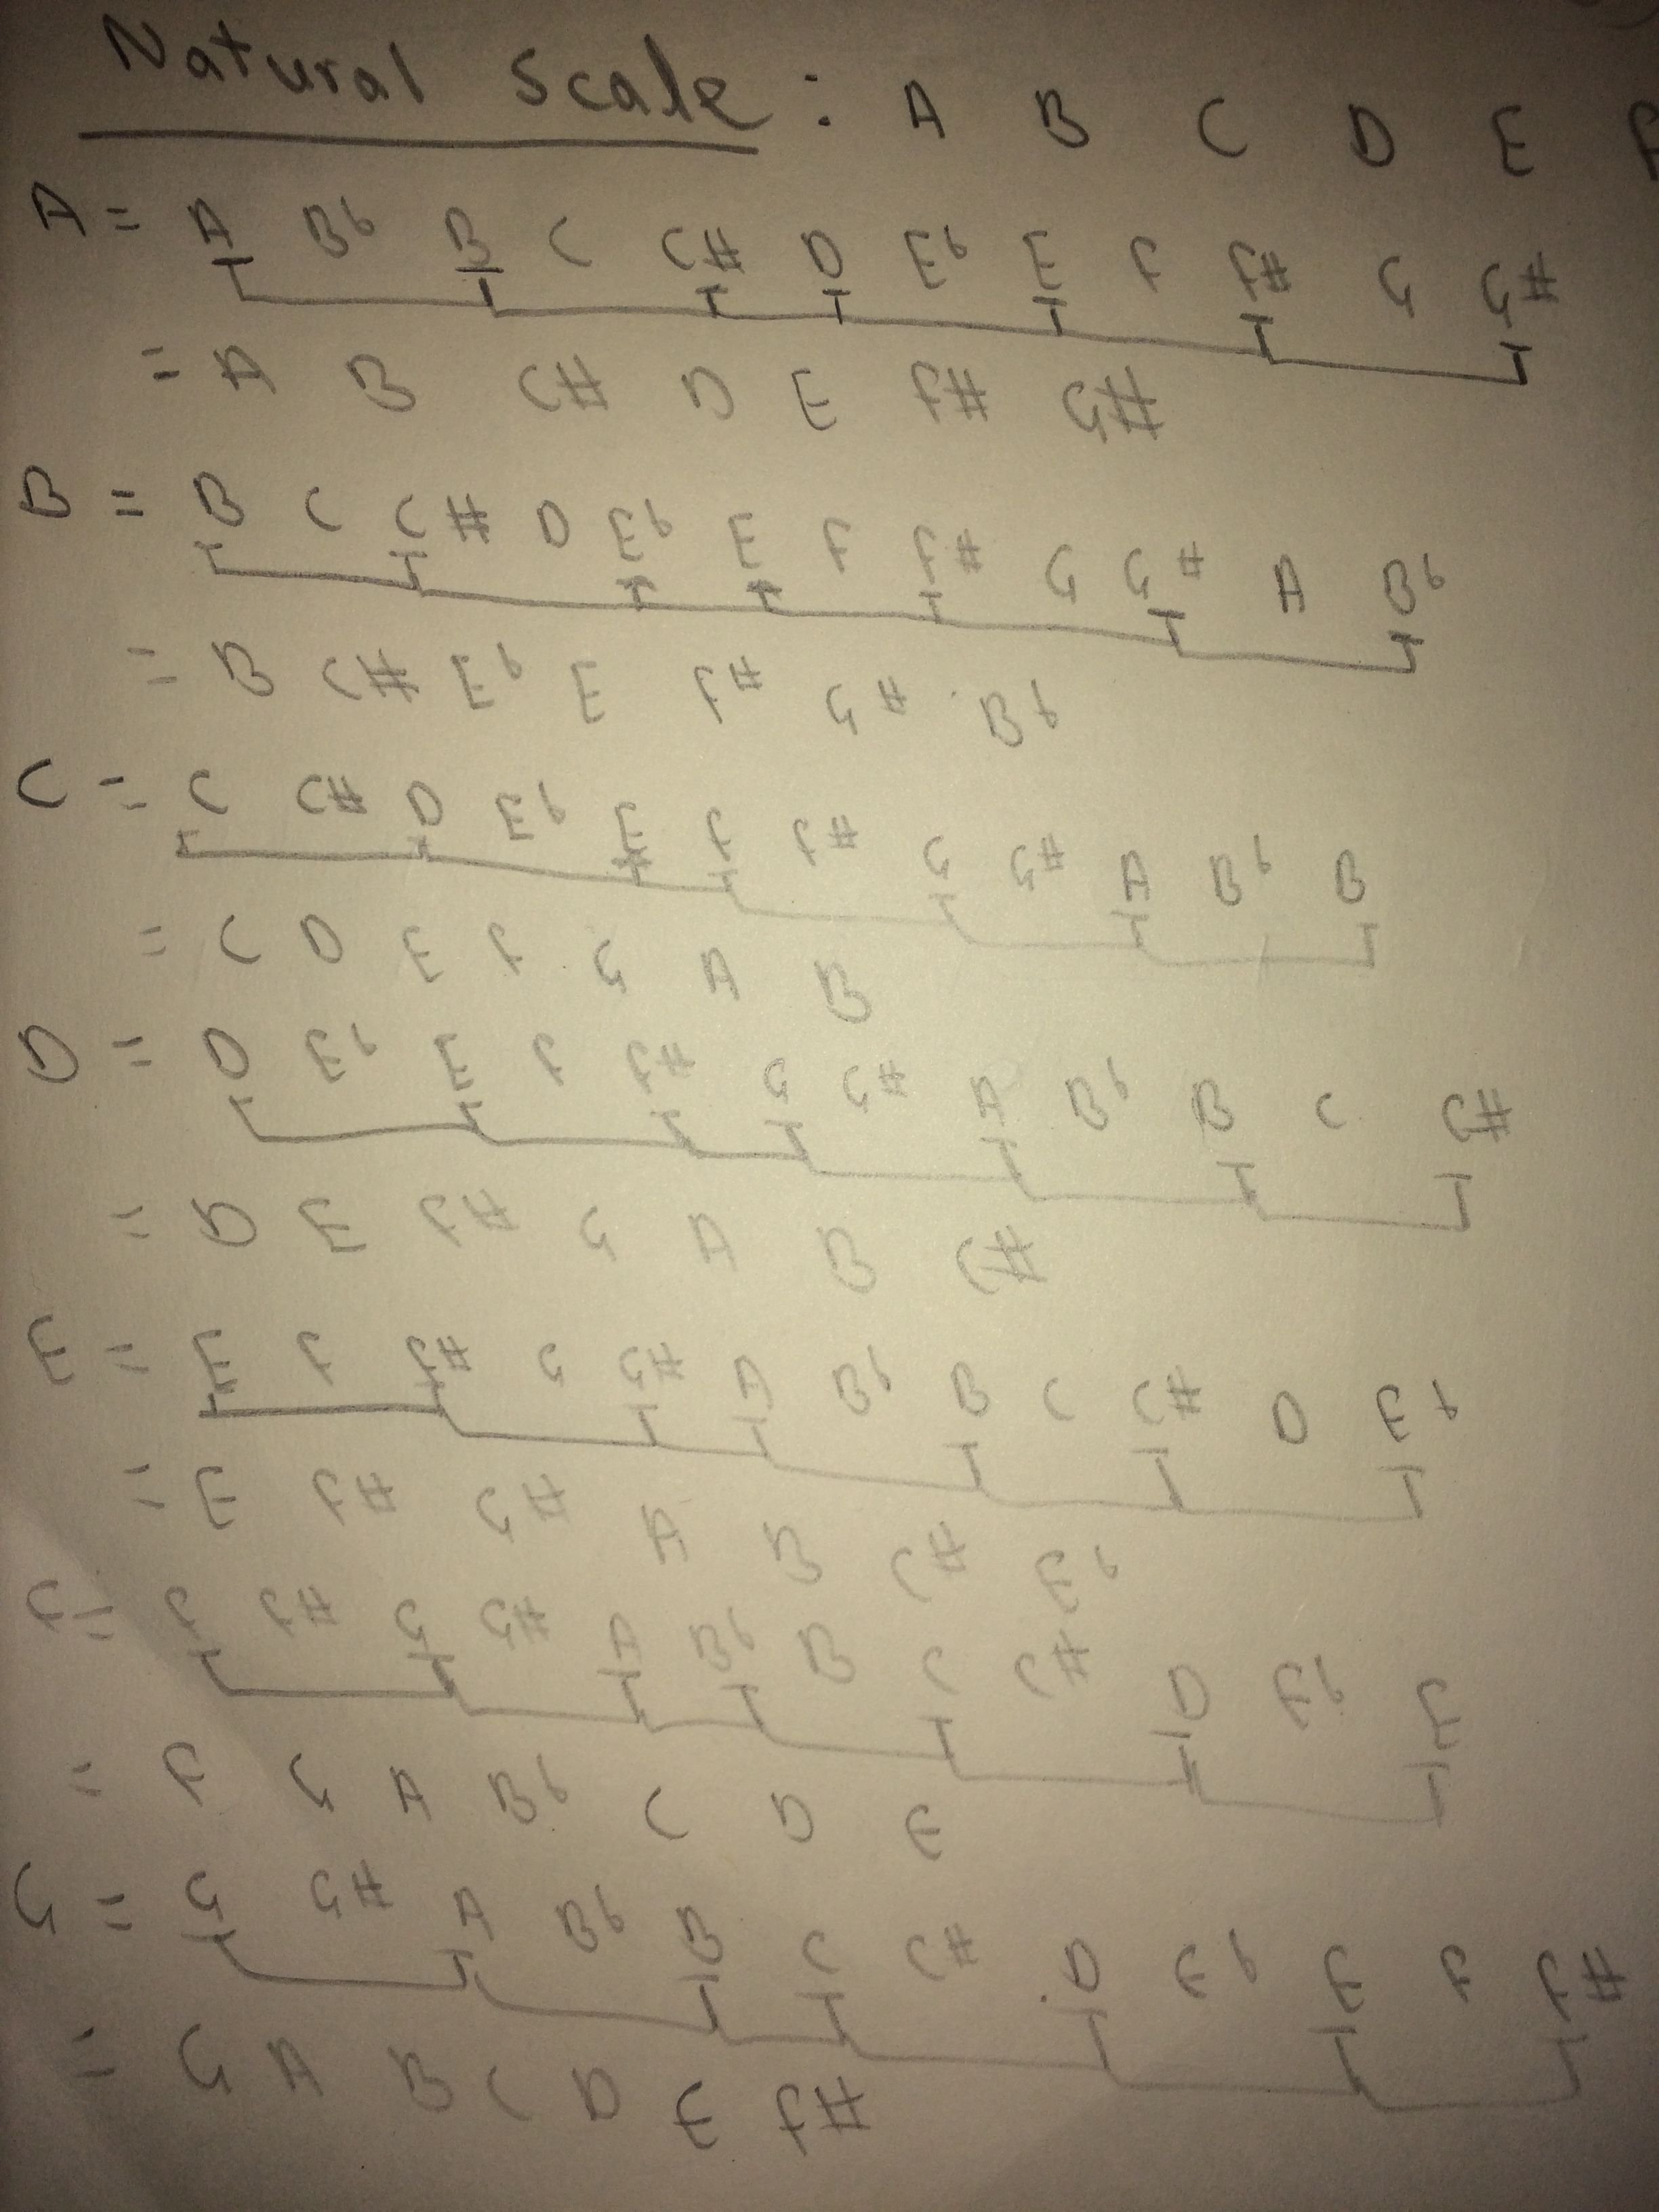 Natural Scale : A B C D E F
A = A Bb B C C# D Eb E F F# G G#
= A B C# D E F# G#
B = B C C# D Eb E F F# G G# A Bb
= B C# Eb E F# G# Bb
C = C C# D Eb E F F# G G# A Bb B
= C D E F G A B
D = D Eb E F F# G G# A Bb B C C#
= D E F# G A B C#
E = E F F# G G# A Bb B C C# D Eb
= E F# G# A B C# Eb
F = F F# G G# A Bb B C C# D Eb E
= F G A Bb C D E
G = G G# A Bb B C C# D Eb E F F#
= G A B C D E F#